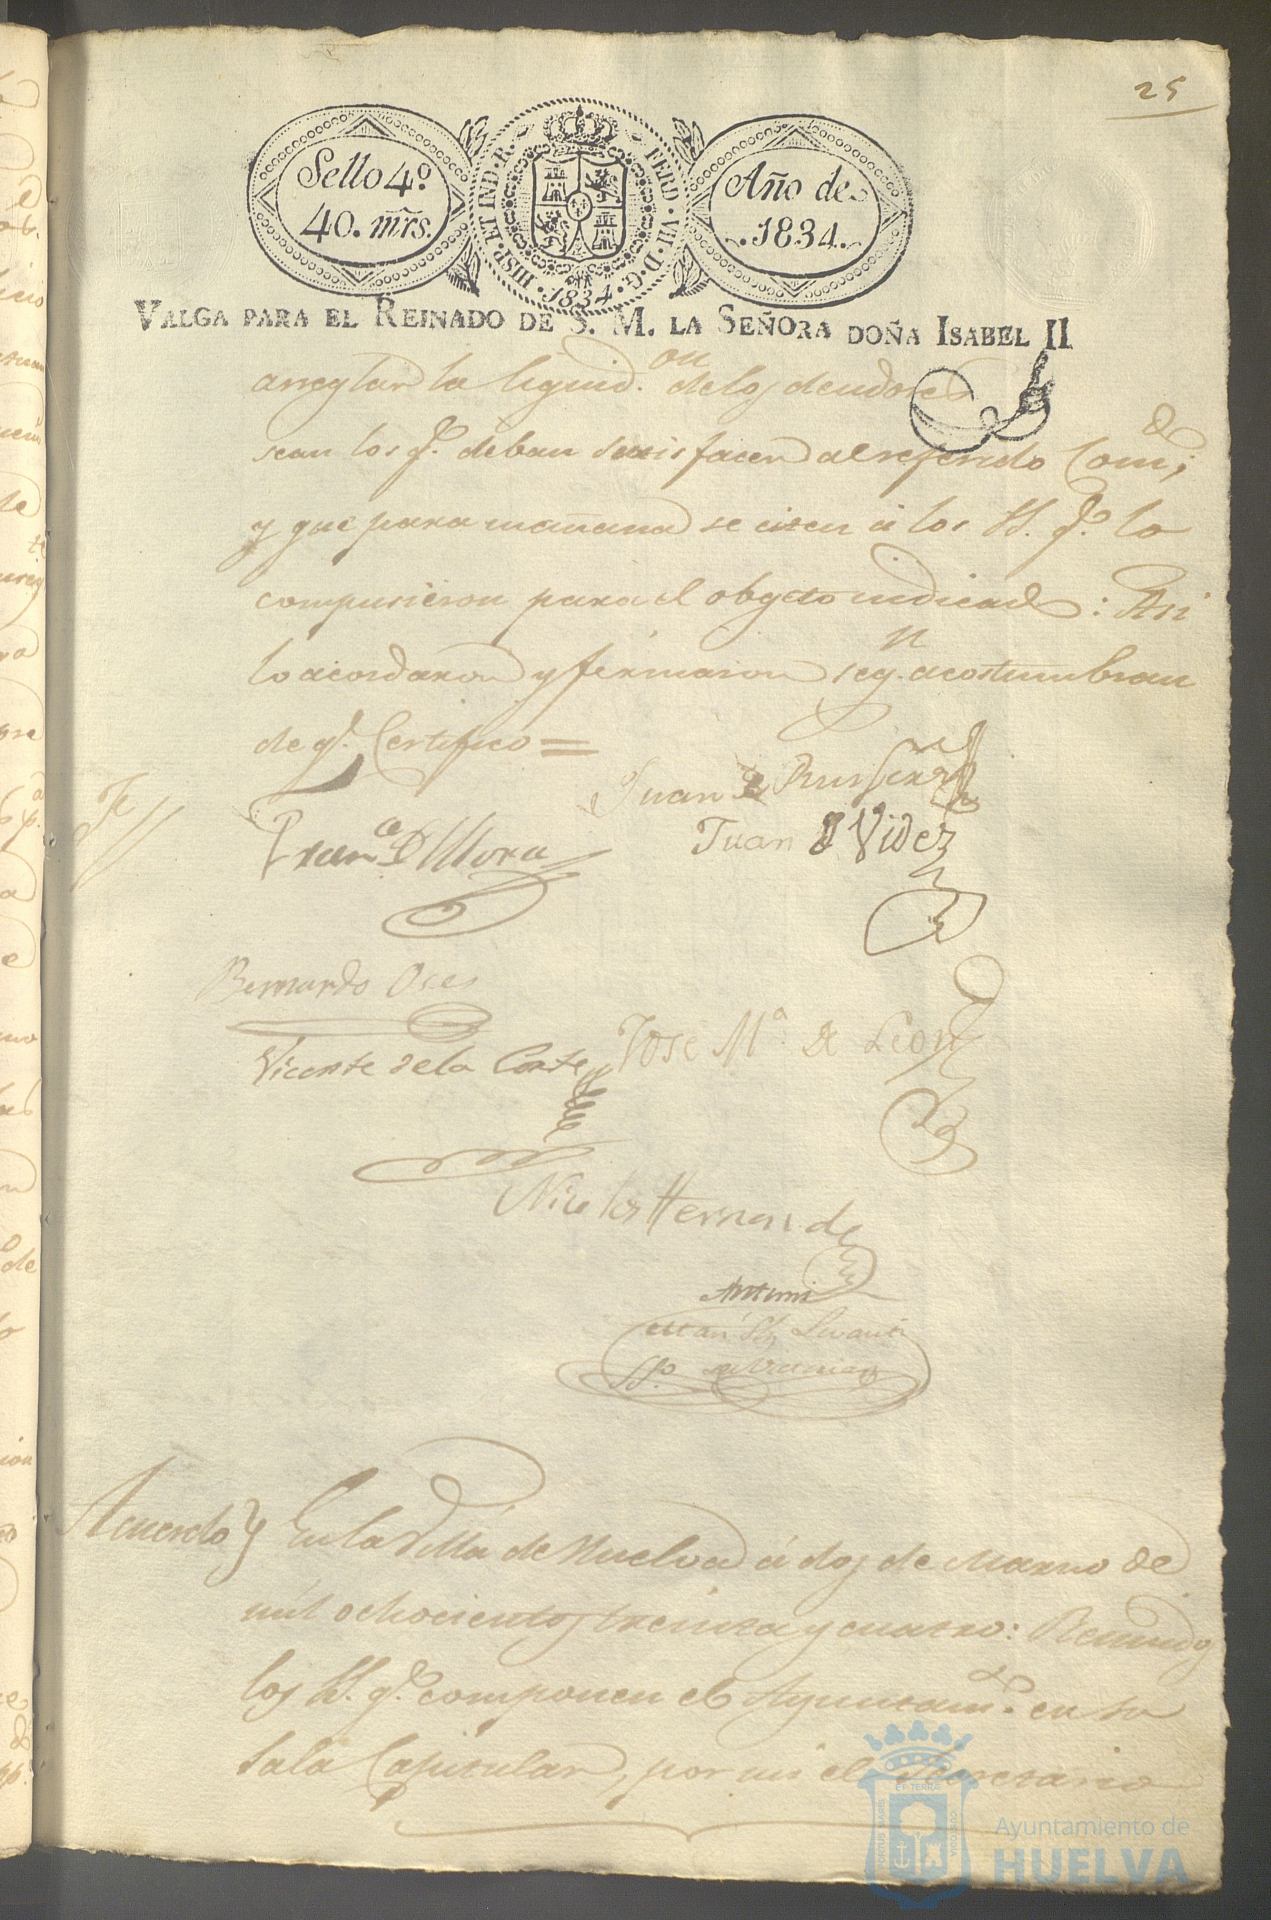 25
Sello 4º
40. mrs.
HISP. ET IND. R. FERD. VII. D. G. 1834.
Año de
1834.
VALGA PARA EL REINADO DE S. M. LA SEÑORA DOÑA ISABEL II
arreglar la liquid.on de los deudores
sean los q.e deban satisfacer al referido Com;
y que para mañana se citen á los SS. q.e lo
compusieron para el obgeto indicado: Asi
lo acordaron y firmaron seg.n acostumbran
de q.e Certifico =
Juan
Fran.co D Mora
Juan Videz
Bernardo Oses
José M.ª de Leon
Vicente de la Corte
Nicolas Hernande
Antemi
Acuerdo } En la Villa de Huelva á dos de Marzo de
mil ochocientos treinta y cuatro: Reunidos
los SS. q.e componen el Ayuntam.to en su
Sala Capitular, por mi el Secretario
PORTUS MARIS ET TERRÆ CUSTODIA
Ayuntamiento de
HUELVA